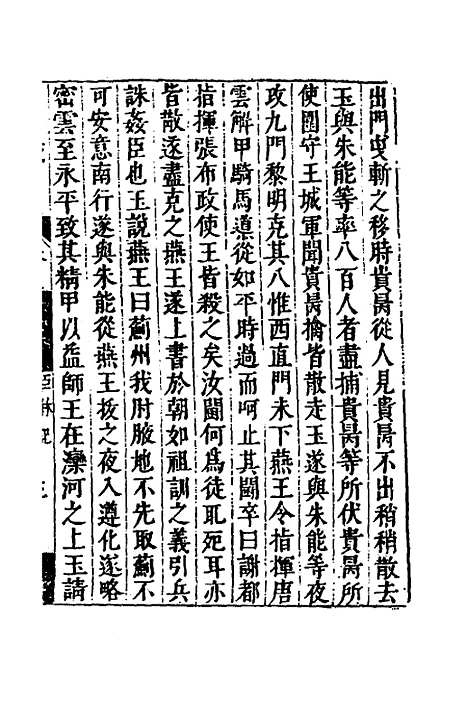 出門曳斬之移時貴昺從人見貴昺不出稍稍散去
玉與朱能等率八百人者盡捕貴昺等所伏貴昺所
使圍守王城軍聞貴昺擒皆散走玉遂與朱能等夜
攻九門黎明克其八惟西直門未下燕王令指揮唐
雲解甲騎馬導從如平時過而呵止其鬬卒曰謝都
指揮張布政使王皆殺之矣汝鬬何爲徒取死耳亦
皆散遂盡克之燕王遂上書於朝如祖訓之義引兵
誅姦臣也玉說燕王曰薊州我肘腋地不先取薊不
可安意南行遂與朱能從燕王拔之夜入遵化遂略
密雲至永平致其精甲以益師王在灤河之上玉請